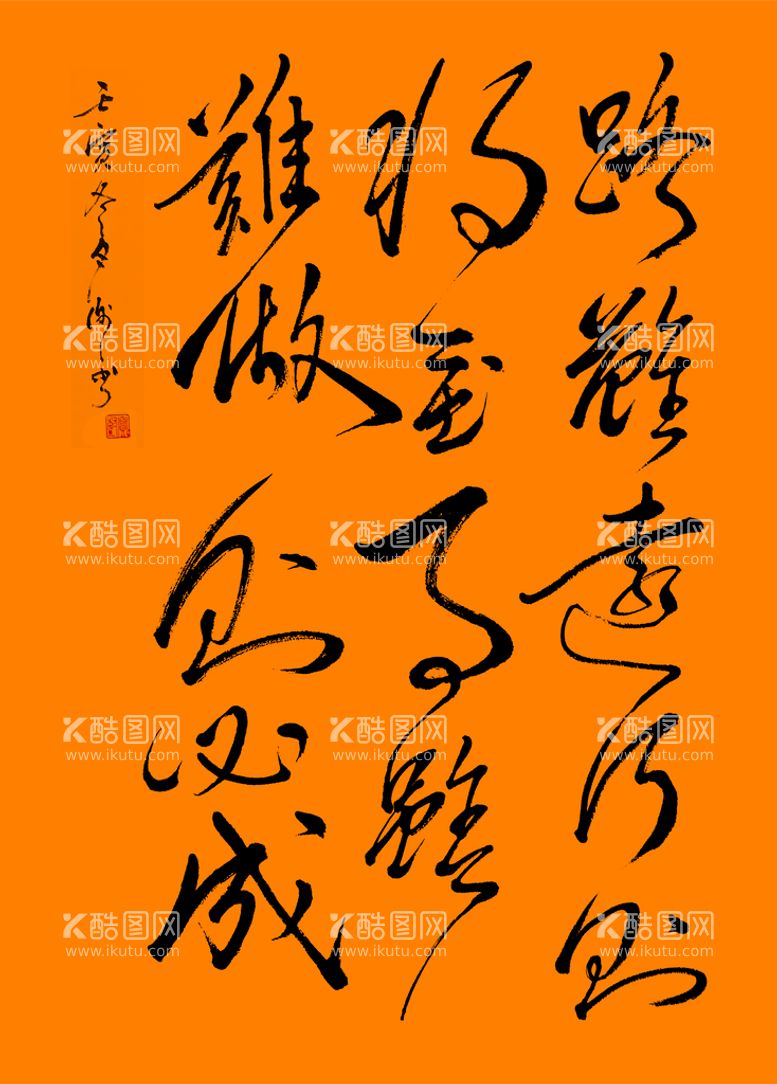 路雖遠行則
将至事雖
難做則必成
壬寅冬
K酷图网 K酷图网 K酷图网
www.ikutu.com www.ikutu.com www.ikutu.com
K酷图网 K酷图网 K酷图网
www.ikutu.com www.ikutu.com www.ikutu.com
K酷图网 K酷图网 K酷图网
www.ikutu.com www.ikutu.com www.ikutu.com
K酷图网 K酷图网 K酷图网
www.ikutu.com www.ikutu.com www.ikutu.com
K酷图网 K酷图网 K酷图网
www.ikutu.com www.ikutu.com www.ikutu.com